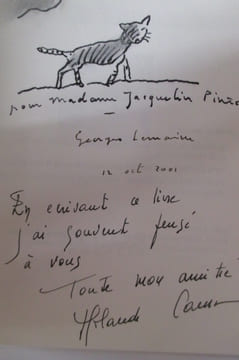 pour madame Jacquelin Pinzo
Georges Lemoine
12 oct 2001
En écrivant ce livre
j'ai souvent pensé
à vous
Toute mon amitié